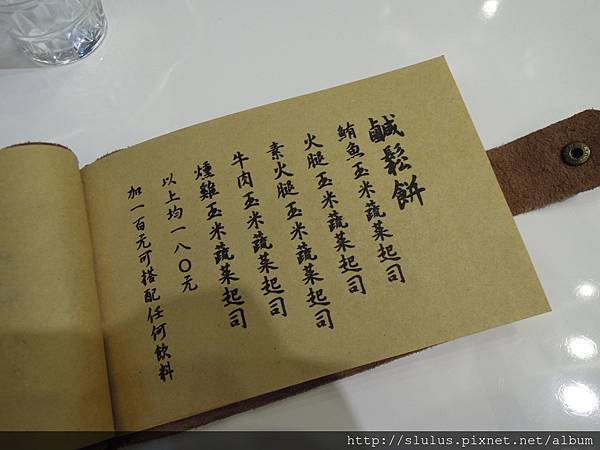 鹹鬆餅
鮪魚玉米蔬菜起司
火腿玉米蔬菜起司
素火腿玉米蔬菜起司
牛肉玉米蔬菜起司
燻雞玉米蔬菜起司
以上均一八〇元
加一百元可搭配任何飲料
http://slulus.pixnet.net/album